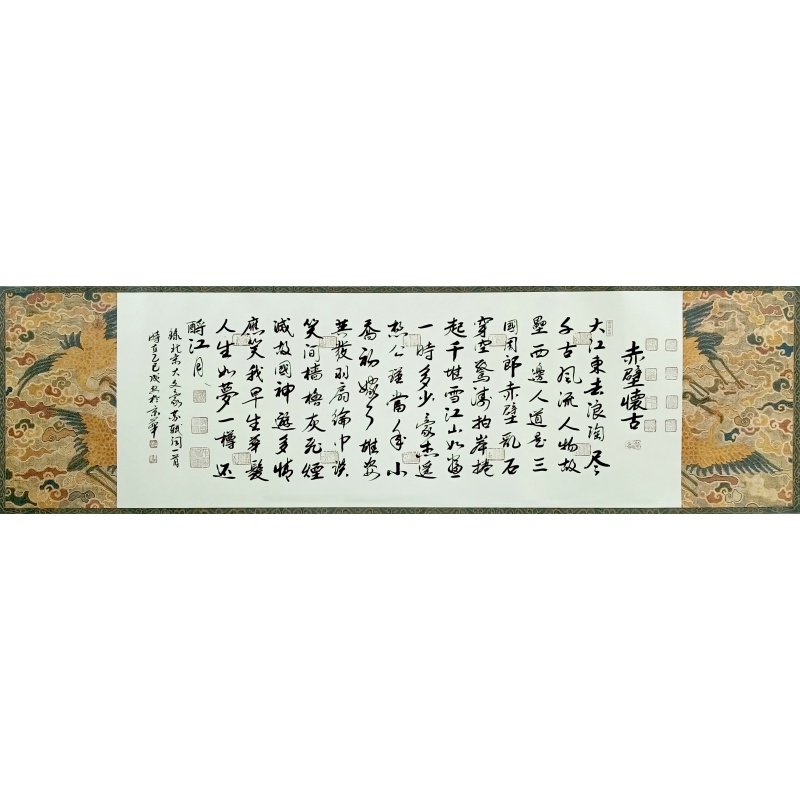 赤壁懷古
大江東去浪淘尽
千古风流人物故
壘西邊人道是三
國周郎赤壁乱石
穿空驚濤拍岸捲
起千堆雪江山如畫
一時多少豪杰遥
想公瑾當年小
喬初嫁了雄姿
英發羽扇綸巾談
笑间檣櫓灰飛煙
滅故國神遊多情
應笑我早生華髮
人生如夢一樽还
酹江月
録北宋大文豪蘇軾詞一首
時在乙巳歲於京華